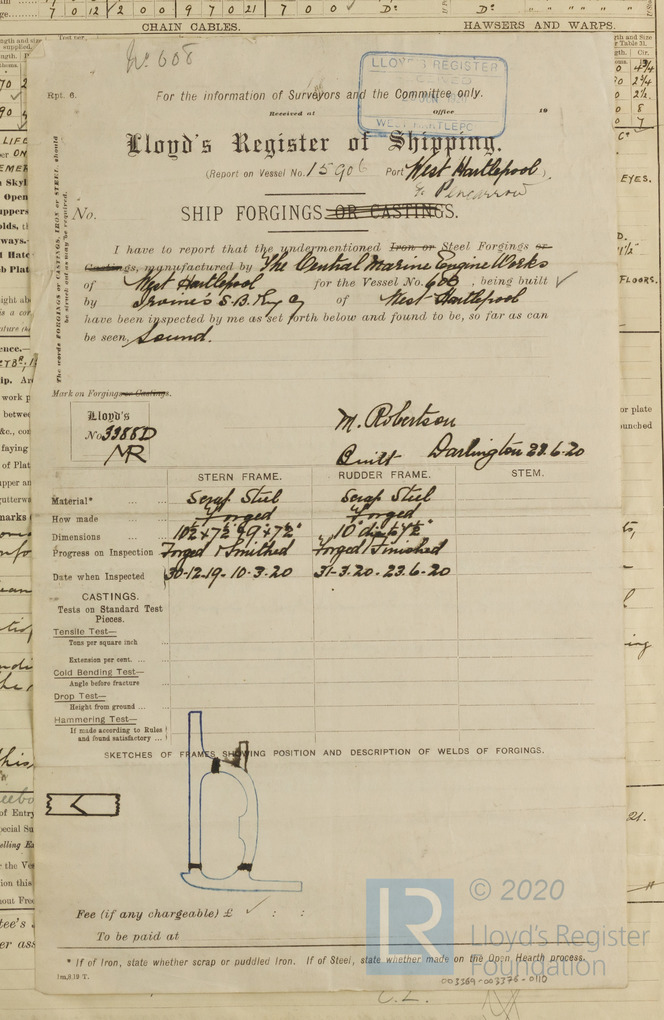 7 0 12 2 0 0 9 7 0 21 7 0 0 Do
CHAIN CABLES. HAWSERS AND WARPS.
No. 608
Rpt. 6.
For the information of Surveyors and the Committee only.
LLOYD'S REGISTER
WEST HARTLEPO
Received at Office 19
Lloyd's Register of Shipping.
(Report on Vessel No. 15906 Port West Hartlepool ).
Pencarrow
No. SHIP FORGINGS OR CASTINGS.
The words FORGINGS or CASTINGS, IRON or STEEL, should be struck out as may be required.
I have to report that the undermentioned Iron or Steel Forgings or
Castings, manufactured by The Central Marine Engine Works
of West Hartlepool for the Vessel No. 608, being built
by Irvine's S.B. of West Hartlepool
have been inspected by me as set forth below and found to be, so far as can
be seen, Sound.
Mark on Forgings or Castings.
Lloyd's
No 3388D
MR
M. Robertson
Darlington 28.6.20
STERN FRAME. RUDDER FRAME. STEM.
Material* Scrap Steel Scrap Steel
How made Forged Forged
Dimensions 10½ × 7½ 9 × 7½" 10" dia
Progress on Inspection Forged & Smithed Forged & Finished
Date when Inspected 30-12-19. 10.3.20 31-3.20. 23.6.20
CASTINGS.
Tests on Standard Test
Pieces.
Tensile Test—
Tons per square inch
Extension per cent. ...
Cold Bending Test—
Angle before fracture
Drop Test—
Height from ground ...
Hammering Test—
If made according to Rules
and found satisfactory ...
SKETCHES OF FRAMES SHOWING POSITION AND DESCRIPTION OF WELDS OF FORGINGS.
Fee (if any chargeable) £ : :
To be paid at
* If of Iron, state whether scrap or puddled Iron. If of Steel, state whether made on the Open Hearth process.
LR © 2020
Lloyd's Register
Foundation
003369-003376-0110